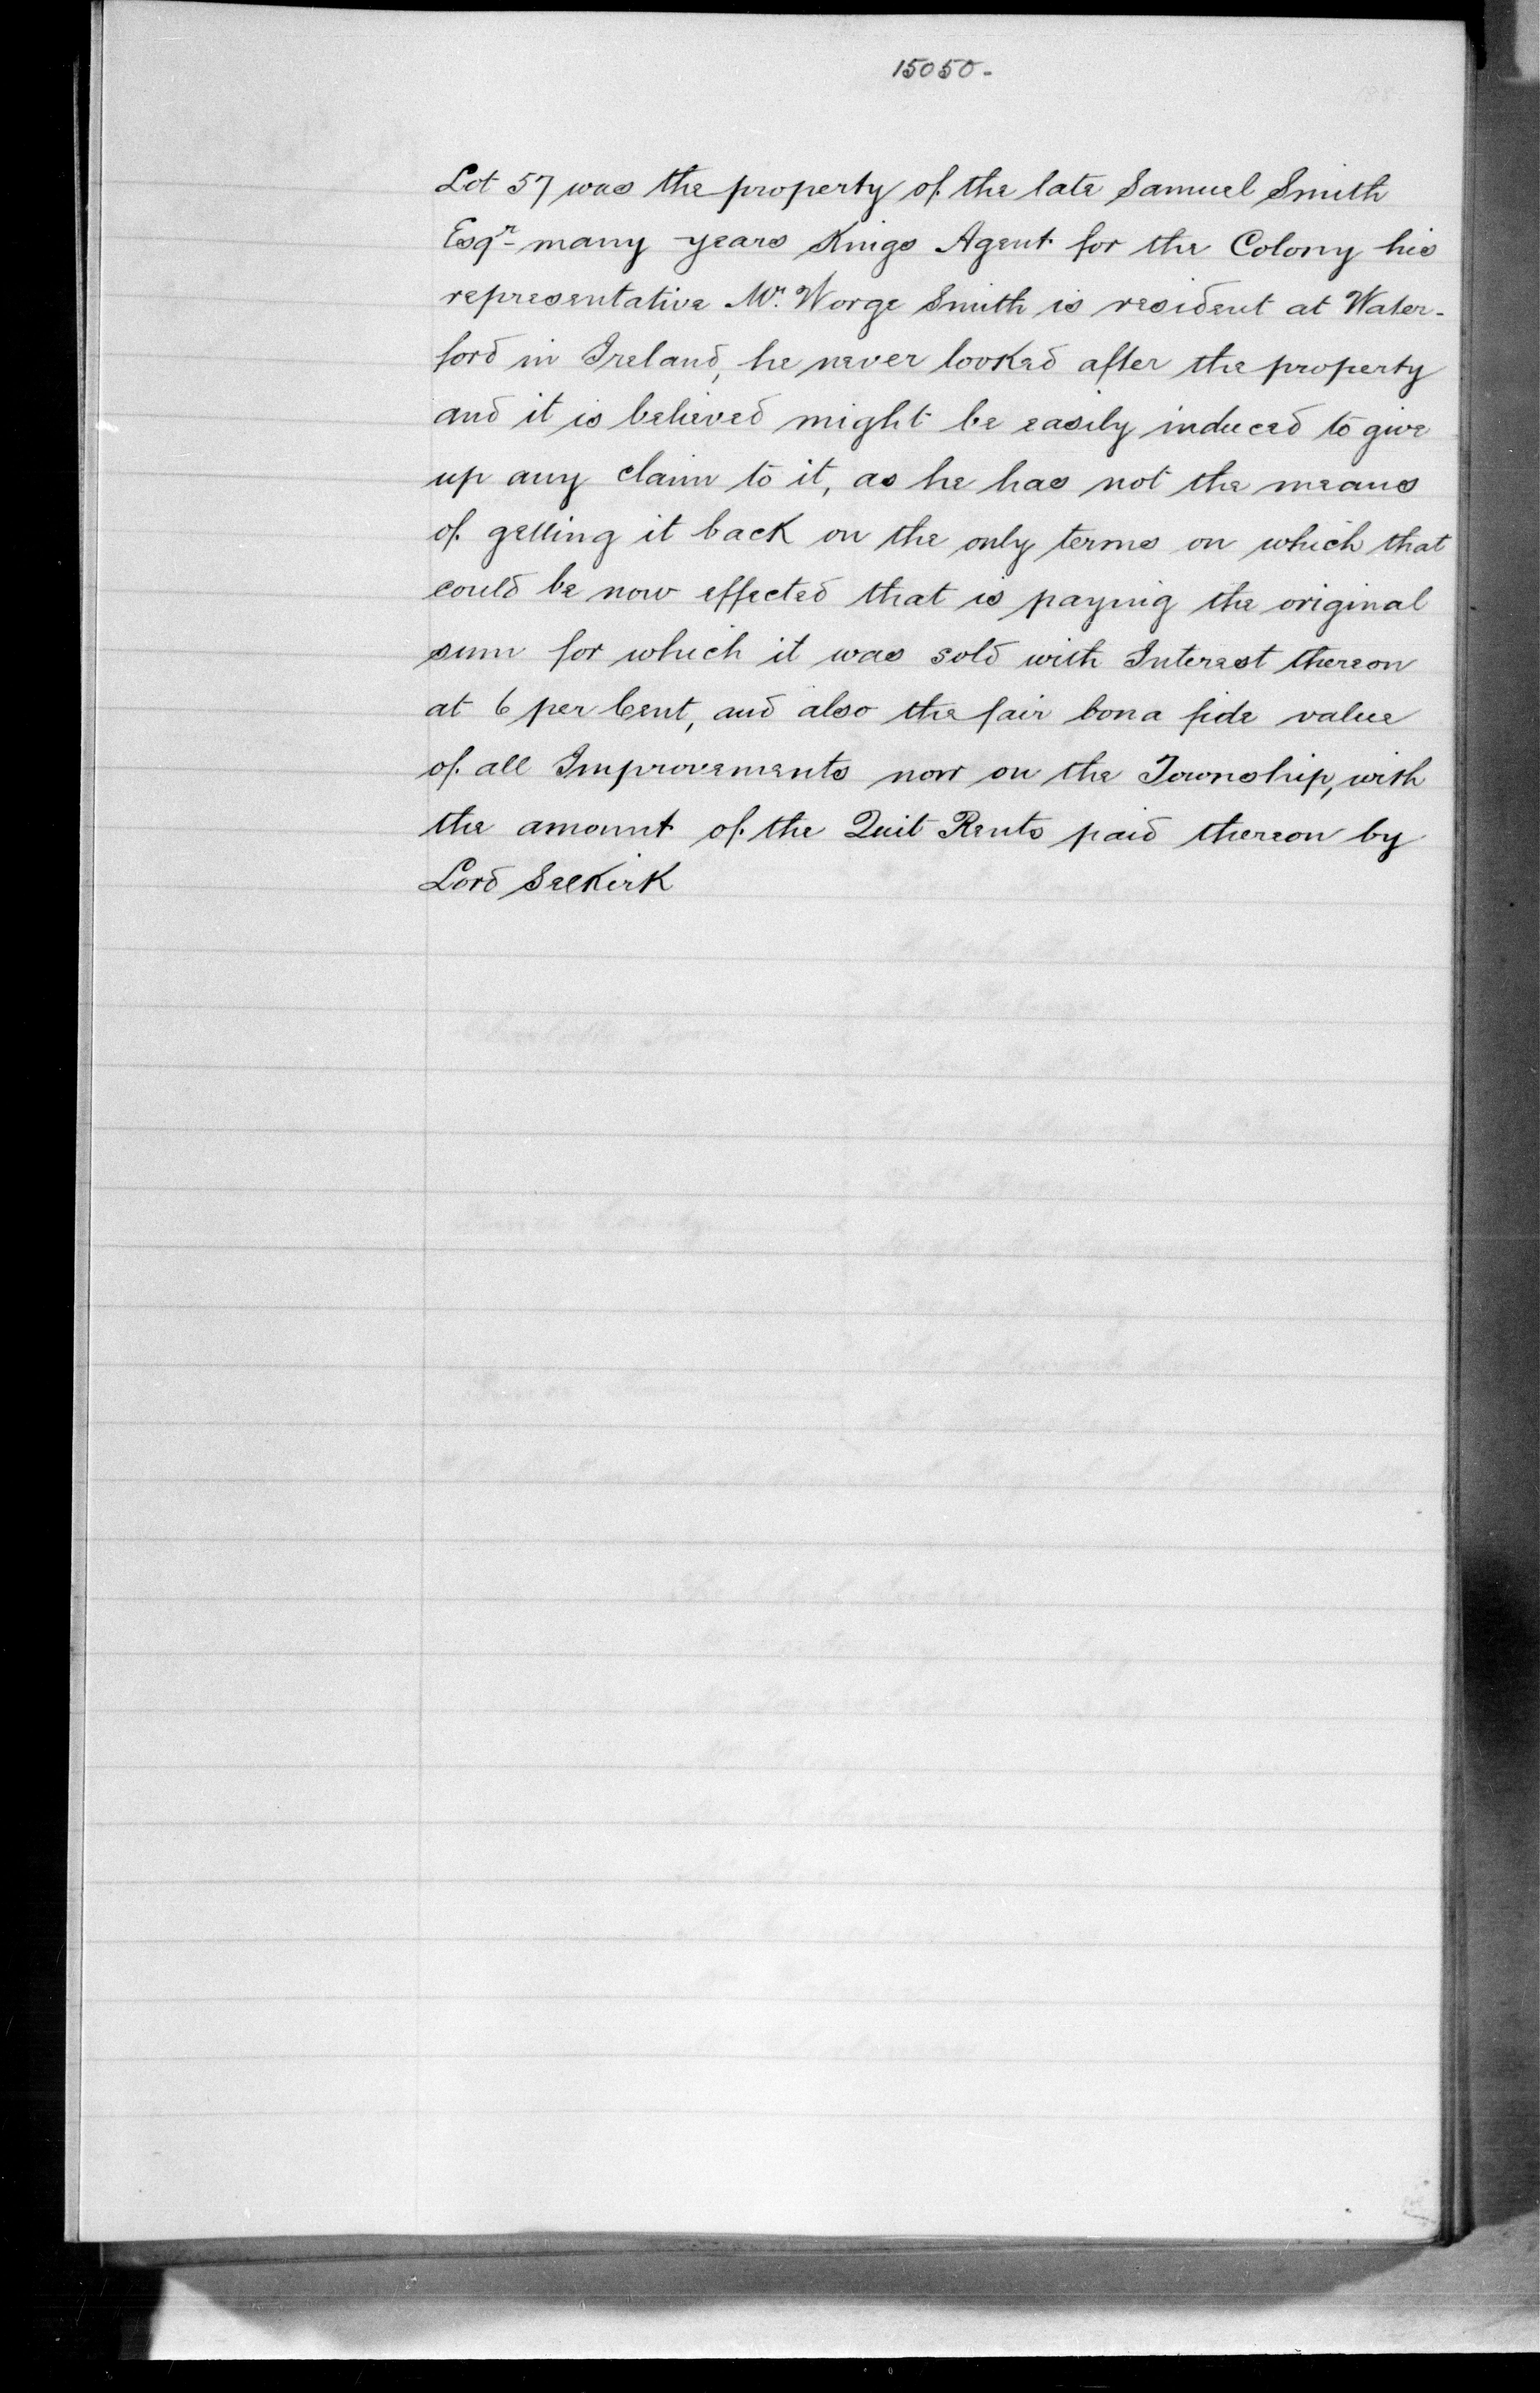 15050-
Lot 57 was the property of the late Samuel Smith
Esqr- many years Kings Agent for the Colony his
representative Mr. Worge Smith is resident at Water-
ford in Ireland, he never looked after the property
and it is believed might be easily induced to give
up any claim to it, as he has not the means
of getting it back on the only terms on which that
could be now effected that is paying the original
sum for which it was sold with Interest thereon
at 6 per Cent, and also the fair bona fide value
of all Improvements now on the Township, with
the amount of the Quit Rents paid thereon by
Lord Selkirk